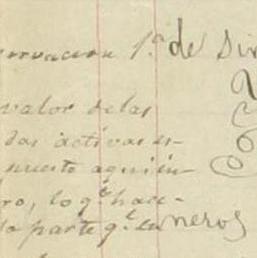 ervacion 1.ª de Sir
valor de las
das activas es-
puesto aquí in-
ro, lo q.e hace-
la parte q.e en neros